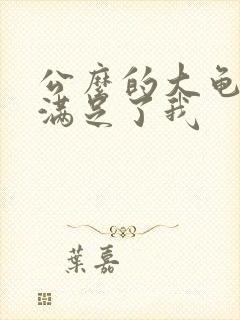 公麽的大龟
满足了我
葉嘉